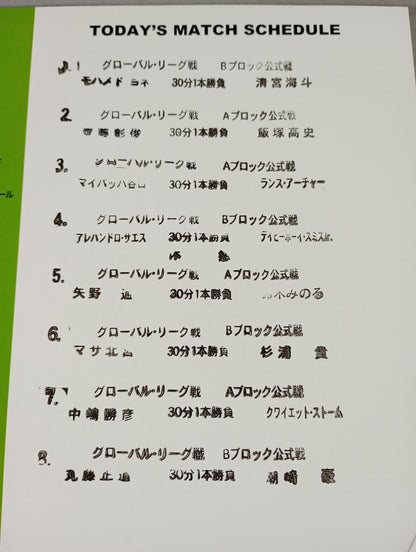 TODAY'S MATCH SCHEDULE
1. グローバル・リーグ戦 Bブロック公式戦
モハメド ヨネ 30分1本勝負 清宮海斗
2. グローバル・リーグ戦 Aブロック公式戦
齋藤彰俊 30分1本勝負 飯塚高史
3. グローバル・リーグ戦 Aブロック公式戦
マイバッハ谷口 30分1本勝負 ランス・アーチャー
4. グローバル・リーグ戦 Bブロック公式戦
アレハンドロ・サエス 30分1本勝負 デイビーボーイ・スミスJr.
休 憩
5. グローバル・リーグ戦 Aブロック公式戦
矢野 通 30分1本勝負 みのる
6. グローバル・リーグ戦 Bブロック公式戦
マサ北宮 30分1本勝負 杉浦 貴
7. グローバル・リーグ戦 Aブロック公式戦
中嶋勝彦 30分1本勝負 クワイエット・ストーム
8. グローバル・リーグ戦 Bブロック公式戦
丸藤正道 30分1本勝負 潮﨑 豪
ール